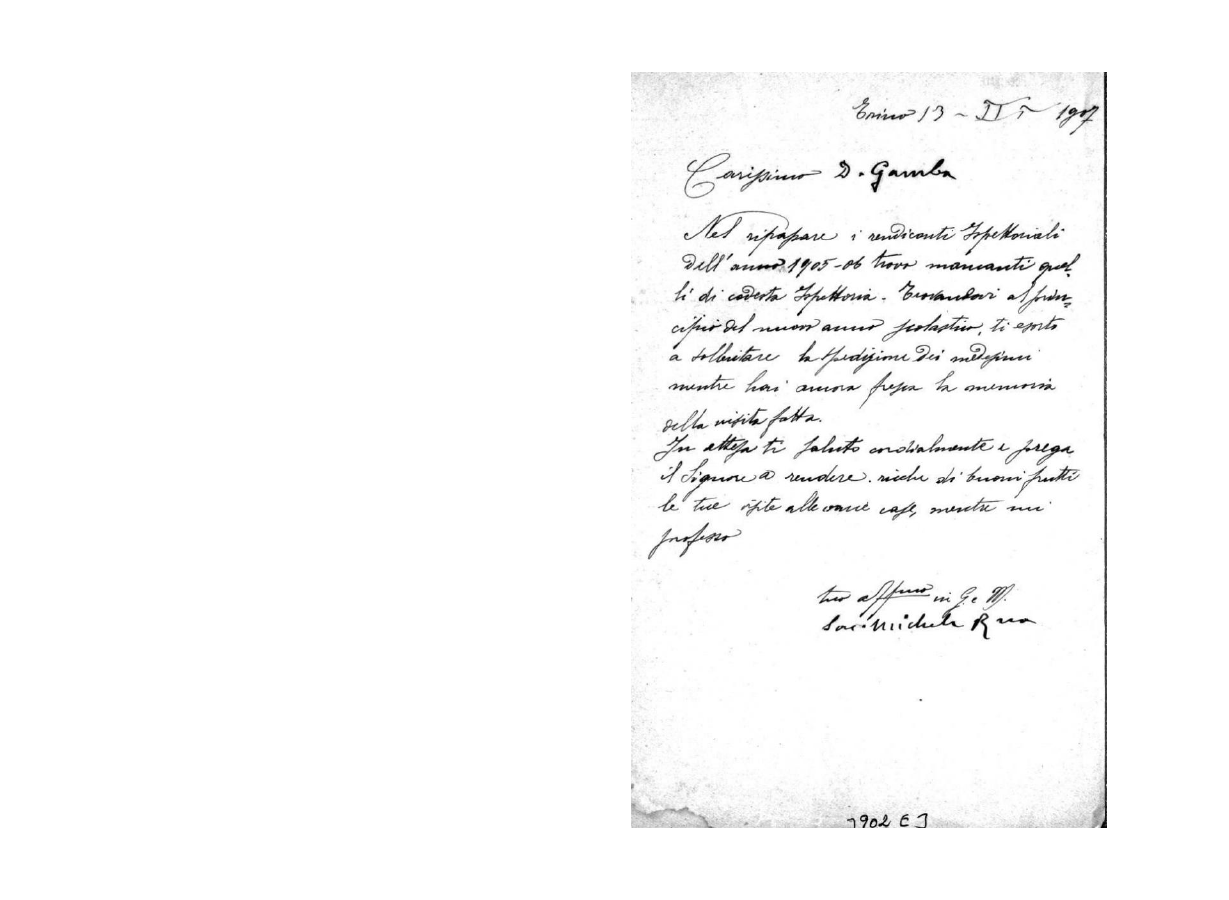 Torino 13 - III - 1907
Carissimo D. Gamba
Nel ripassare i rendiconti Ispettoriali
dell'anno 1905-06 trovo mancanti quel-
li di codesta Ispettoria. Trovandovi al prin=
cipio del nuovo anno scolastico, ti esorto
a sollecitare la spedizione dei medesimi
mentre hai ancora fresca la memoria
della visita fatta.
In attesa ti saluto cordialmente e prego
il Signore a rendere ricche di buoni frutti
le tue visite alle varie case, mentre mi
professo
tuo affmo in G. e M.
Sac. Michele Rua